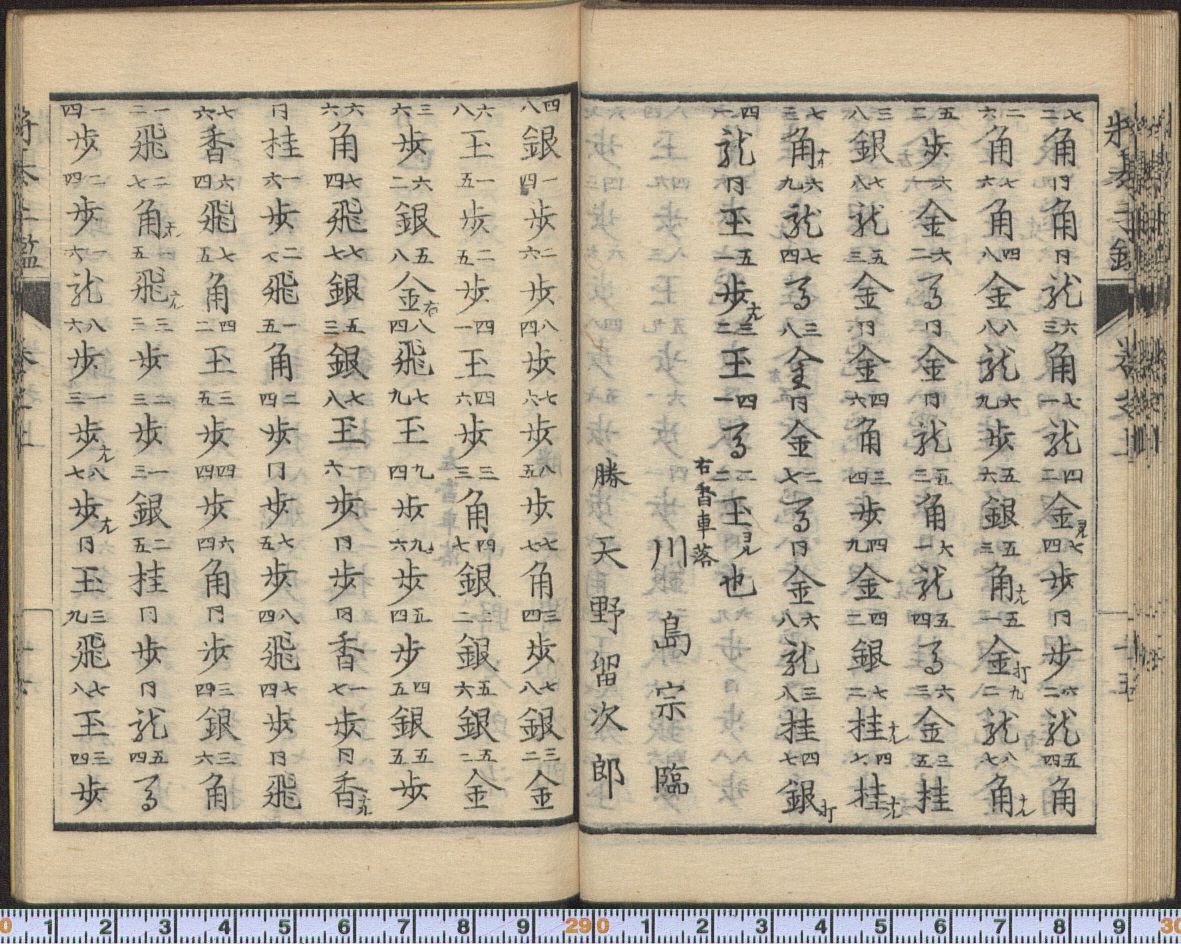 七二角 同角 同龍 六三角 七一龍 四二金 七四歩 同歩 六二龍 五四角
二六角 七六角 四八金 八八龍 六九歩 五六銀 五三角ナル 五一金打 九二龍 八七角ナル
五三歩 六一金 六二馬 同金 同龍 五三角 六一龍 五四馬 六三金 三五桂
三八銀 七八龍 五三金 同金 四六角 三四歩 四九金 四三銀 七二桂ナル 四七桂ナル
七三角ナル 六九龍 七四馬 三八金 同金 二七馬 同金 六八龍 三八桂 四七銀打
四一龍 同王 五一歩ナル 三二王 四一馬 二二王ヨル也
右香車落
川島宗臨
勝 天野留次郎
四八銀 一四歩 二六歩 八四歩 七六歩 八五歩 七七角 三四歩 七八銀 三二金
六八王 一五歩 二五歩 四一王 四六歩 三三角 四七銀 二二銀 五六銀 五二金
三六歩 六二銀 五八金右 八四飛 七九王 九四歩 九六歩 五四歩 四五銀 五五歩
六六角 七四飛 七七銀 五三銀 七八王 一六歩 同歩 同香 一七歩 同香ナル
同桂 一六歩 二七飛 一五角 二四歩 同歩 七五歩 八四飛 七四歩 同飛
七六香 六四飛 七五角 四二王 三五歩 四四歩 六四角 同歩 三四銀 三六角
一二飛 二七角ナル 一五飛ナル 三三歩 二三歩 一三銀 二五桂 同歩 同龍 四五馬
一四歩 二四歩 一六龍 八六歩 一三歩ナル 八七歩ナル 同王 三九飛 七八王 三四歩